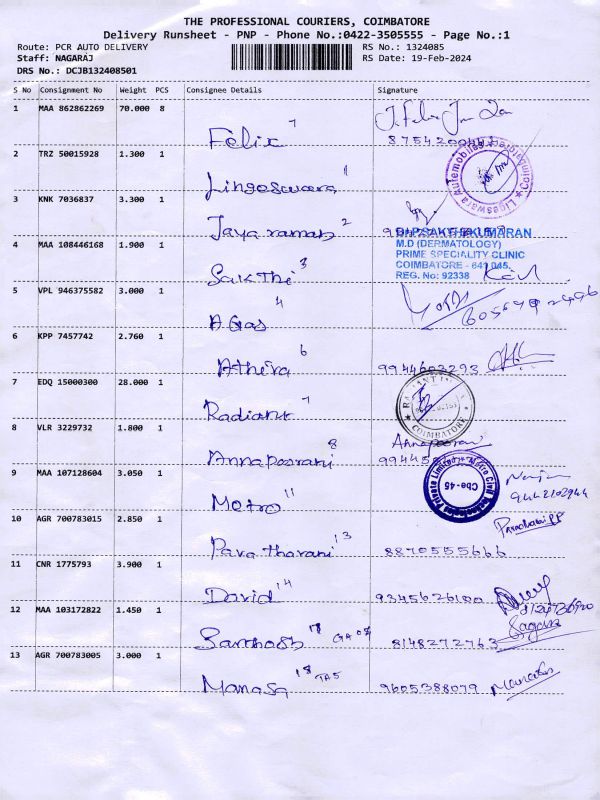 THE PROFESSIONAL COURIERS, COIMBATORE
Delivery Runsheet - PNP - Phone No.:0422-3505555 - Page No.:1
Route: PCR AUTO DELIVERY RS No.: 1324085
Staff: NAGARAJ RS Date: 19-Feb-2024
DRS No.: DCJB132408501
S No Consignment No Weight PCS Consignee Details Signature
1 MAA 862862269 70.000 8
Felix 7
2 TRZ 50015928 1.300 1
Lingeswara 1
Ligeswara Automobiles Coimbatore
3 KNK 7036837 3.300 1
Jayaraman 2
SAKTHI KUMARAN
M.D (DERMATOLOGY)
4 MAA 108446168 1.900 1
PRIME SPECIALITY CLINIC
COIMBATORE - 641 045.
REG. No: 92338
Sakthi 3
5 VPL 946375582 3.000 1
Agas 4
6 KPP 7457742 2.760 1
Athira 6 9944603293
7 EDQ 15000300 28.000 1
Radiant 7
COIMBATORE
8 VLR 3229732 1.800 1
Annapoorani 8
9 MAA 107128604 3.050 1
Private Limited
Metro
Cbe-45
Metro 11 9442102944
10 AGR 700783015 2.850 1
Paratharani 13 8870555666
11 CNR 1775793 3.900 1
David 14 9345626180
12 MAA 103172822 1.450 1
Santhosh 18 8148272763
13 AGR 700783005 3.000 1
Manasa 18 TAS 9605388079 Manasa